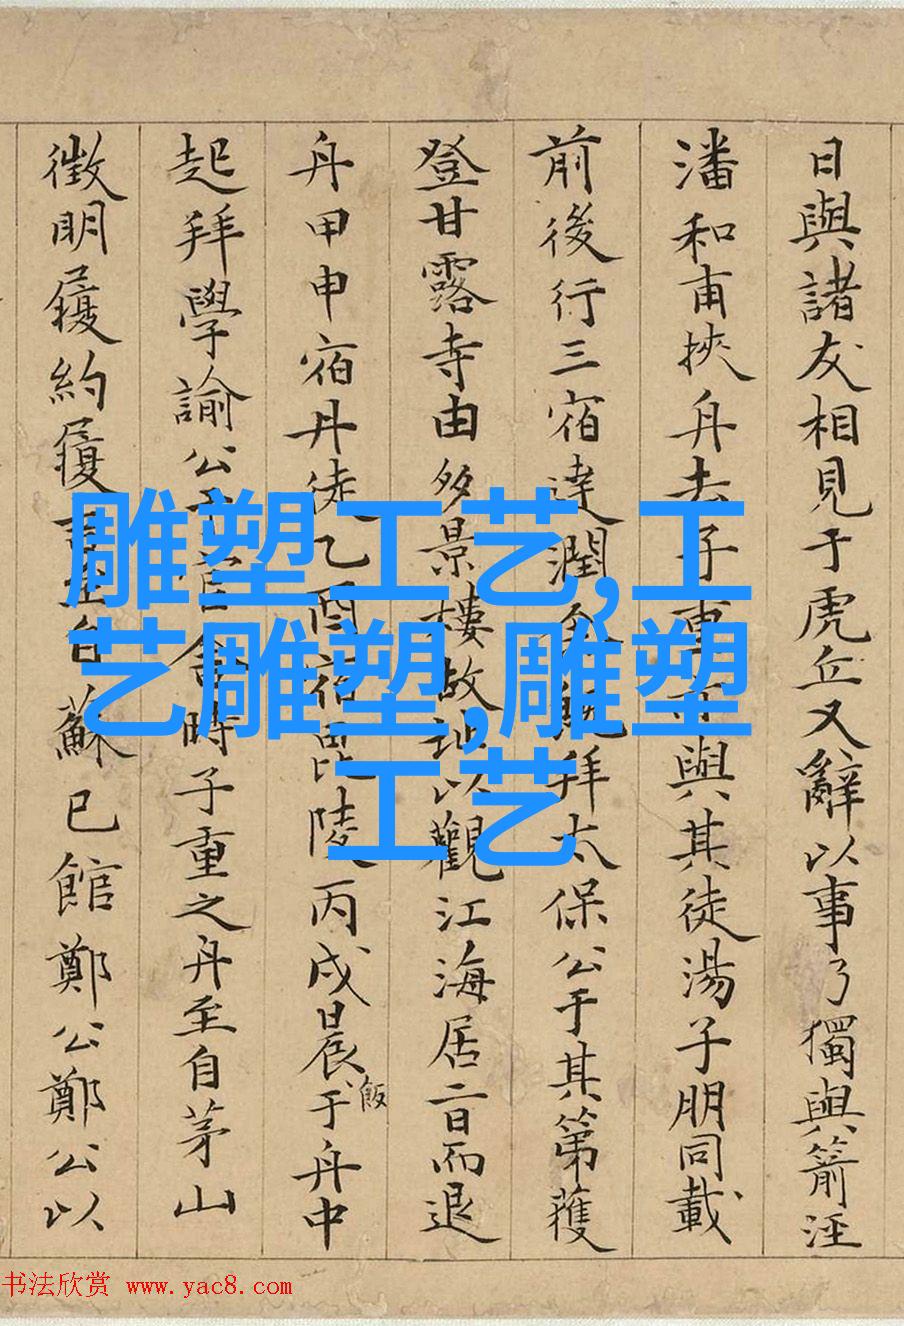 日與諸友相見于虎丘又辭以事乃獨與箭涇
潘和甫挾舟去子重與其徒湯子朋同載
前後行三宿達潤拜太保公于其第獲
登甘露寺由多景樓故址以觀江海居二日而退
舟甲申宿丹徒乙酉宿毘陵丙戌晨飯于舟中
起拜學諭公于官舍時子重之舟至自茅山
徵明履約履自蘇已館鄭公鄭公以
雕塑工艺,工
艺雕塑,雕塑
工艺
书法欣赏 www.yac8.com